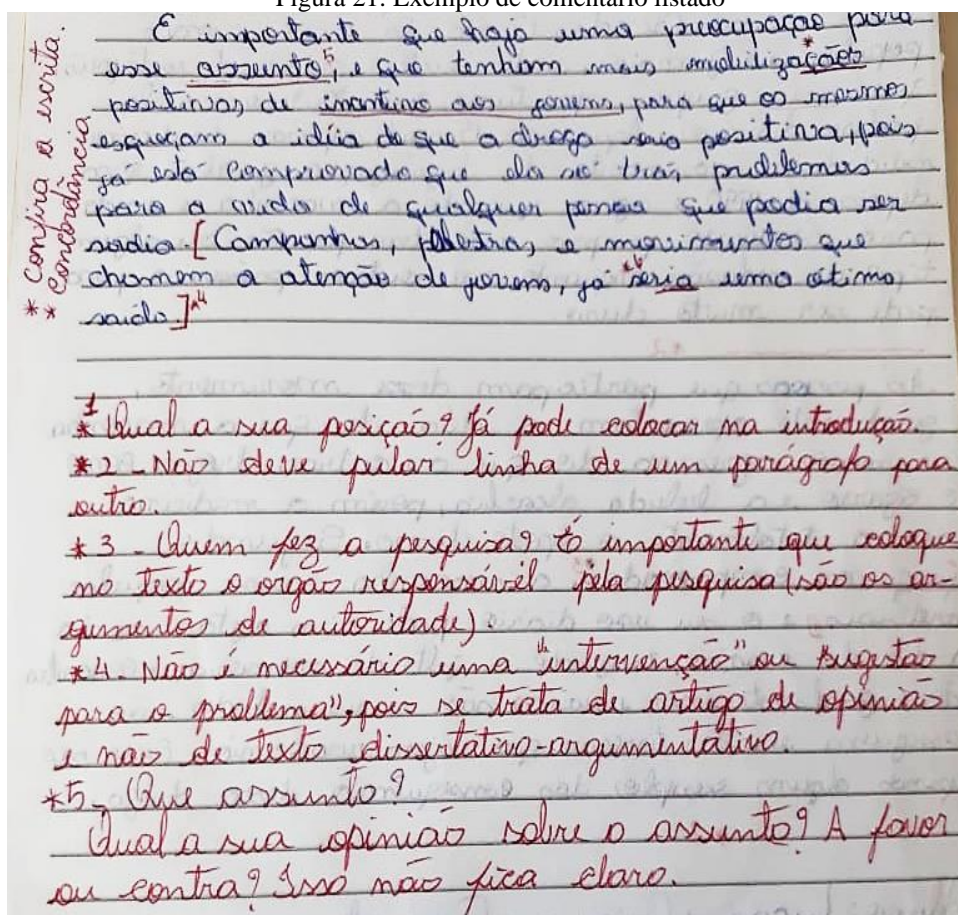 Figura 21: Exemplo de comentário listado
É importante que haja uma preocupação para
esse assunto⁵, e que tenham mais mobilizações*
positivas, de incentivo aos jovens, para que os mesmos
esqueçam a idéia de que a droga seria positiva, pois
já está comprovado que ela só trás problemas
para a vida de qualquer pessoa que podia ser
sadia. [Campanhas, palestras, e movimentos que
chamem a atenção de jovem, já seria uma ótima
saída.]*4
* Confira a escrita.
** Concordância
*1 Qual a sua posição? Já pode colocar na introdução.
*2 - Não deve pular linha de um parágrafo para
outro.
*3 - Quem fez a pesquisa? É importante que coloque
no texto o orgão responsável pela pesquisa (são os ar-
gumentos de autoridade).
*4. Não é necessário uma "intervenção" ou sugestão
para o problema", pois se trata de artigo de opinião
e não de texto dissertativo-argumentativo
*5 - Que assunto?
Qual a sua opinião sobre o assunto? A favor
ou contra? Isso não fica claro.